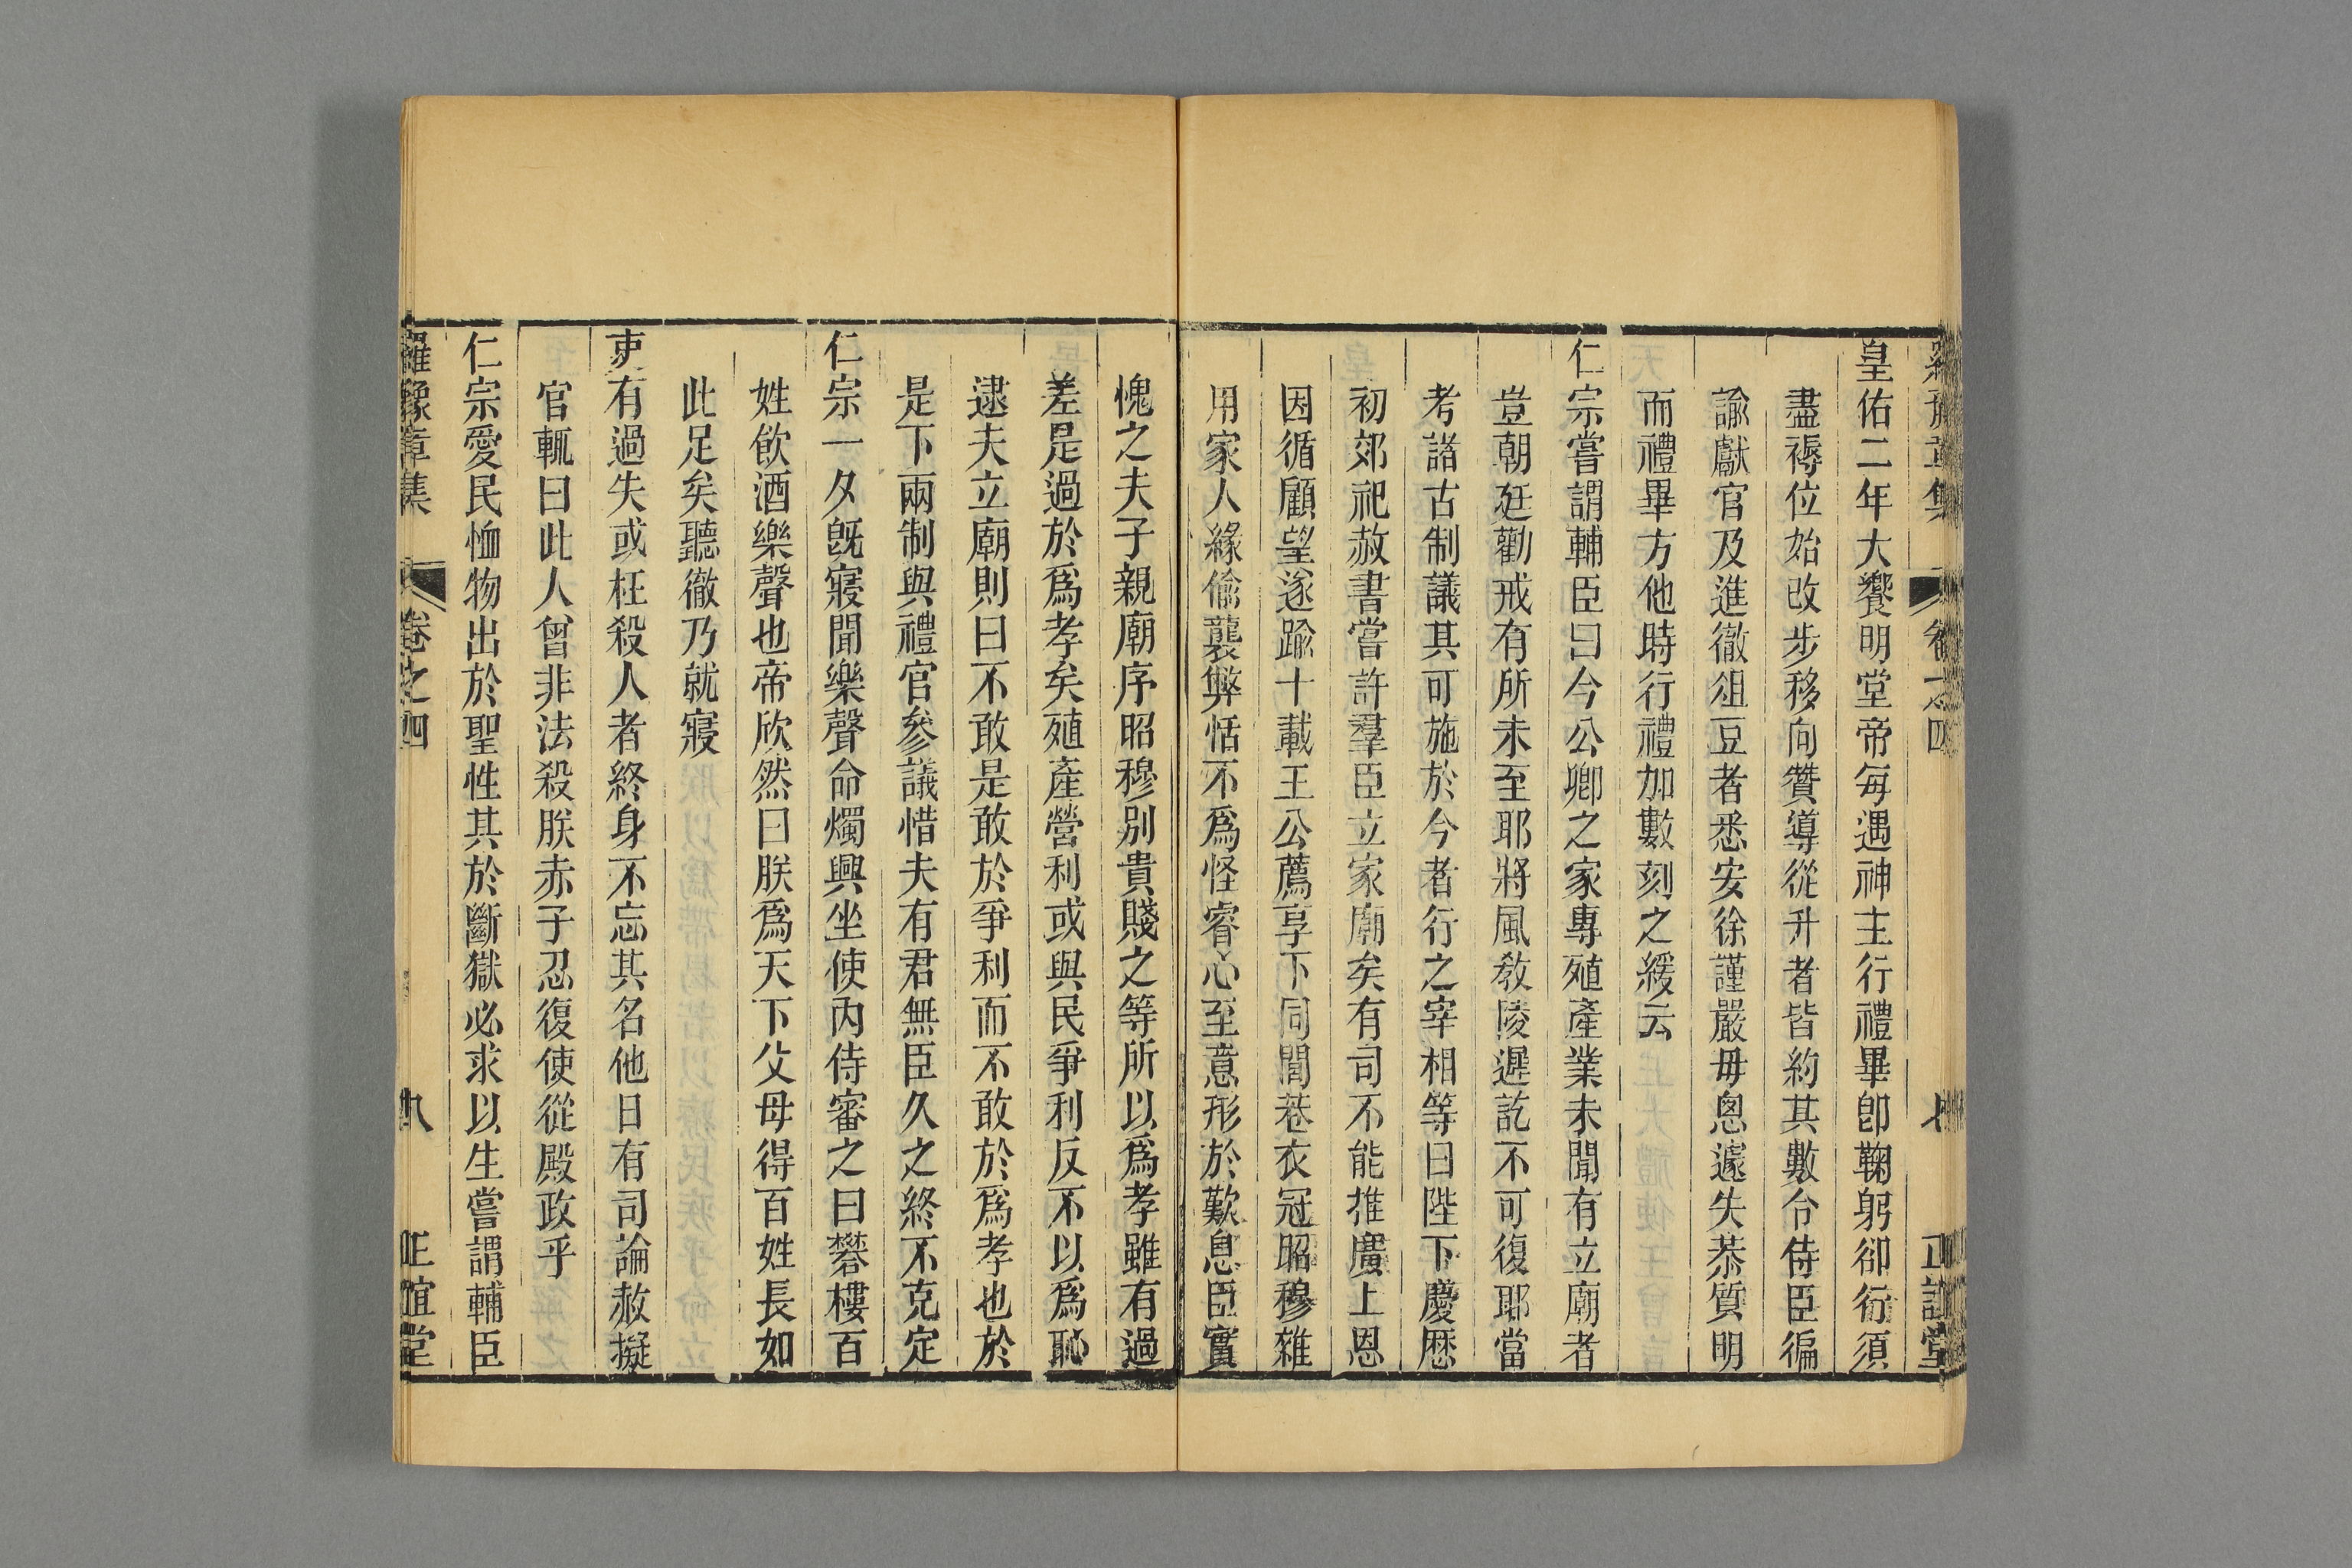 皇佑二年大饗明堂帝每遇神主行禮畢卽鞠躬卻行須
盡褥位始改步移向贊導從升者皆約其數令侍臣徧
諭獻官及進徹俎豆者悉安徐謹嚴毋怱遽失恭質明
而禮畢方他時行禮加數刻之緩云
仁宗嘗謂輔臣曰今公卿之家專殖產業未聞有立廟者
豈朝廷勸戒有所未至耶將風敎陵遲訖不可復耶當
考諸古制議其可施於今者行之宰相等曰陛下慶歷
初郊祀赦書嘗許羣臣立家廟矣有司不能推廣上恩
因循顧望遂踰十載王公薦享下同閭巷衣冠昭穆雜
用家人緣偷襲弊恬不爲怪睿心至意形於歎息臣實
愧之夫子親廟序昭穆別貴賤之等所以爲孝雖有過
差是過於爲孝矣殖產營利或與民爭利反不以爲恥
逮夫立廟則曰不敢是敢於爭利而不敢於爲孝也於
是下兩制與禮官參議惜夫有君無臣久之終不克定
仁宗一夕旣寢聞樂聲命燭興坐使內侍審之曰礬樓百
姓飮酒樂聲也帝欣然曰朕爲天下父母得百姓長如
此足矣聽徹乃就寢
吏有過失或枉殺人者終身不忘其名他日有司論赦擬
官輒曰此人曾非法殺朕赤子忍復使從殿政乎
仁宗愛民恤物出於聖性其於斷獄必求以生嘗謂輔臣
羅豫章集 卷之四 八 正誼堂